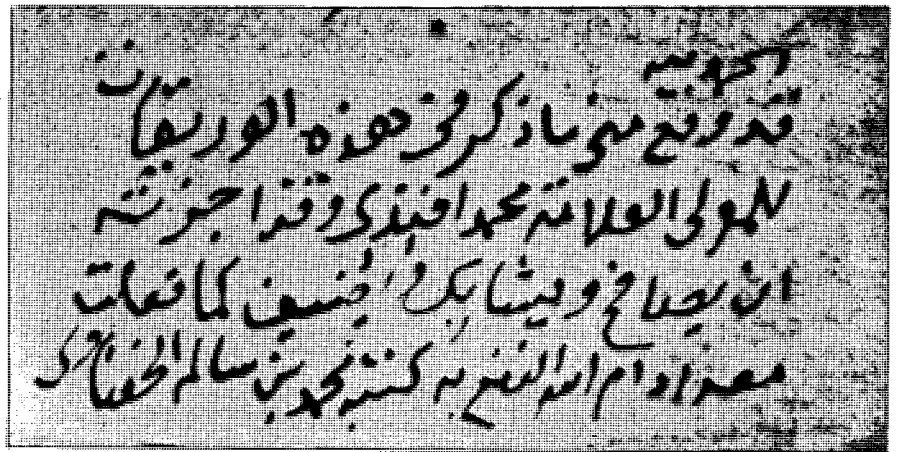 الحمد لله
قد وقع مني ما ذكر في هذه الوريقات
للمولى العلامة محمد افندى وقد اجزته
ان يصافح ويشابك ويضيف كما فعلت
معه ادام الله النفع به كتبه محمد بن سالم الحفناوى